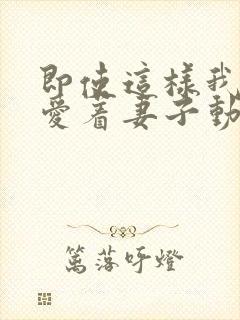 即使這樣我
愛着妻子動
篤落吁燈